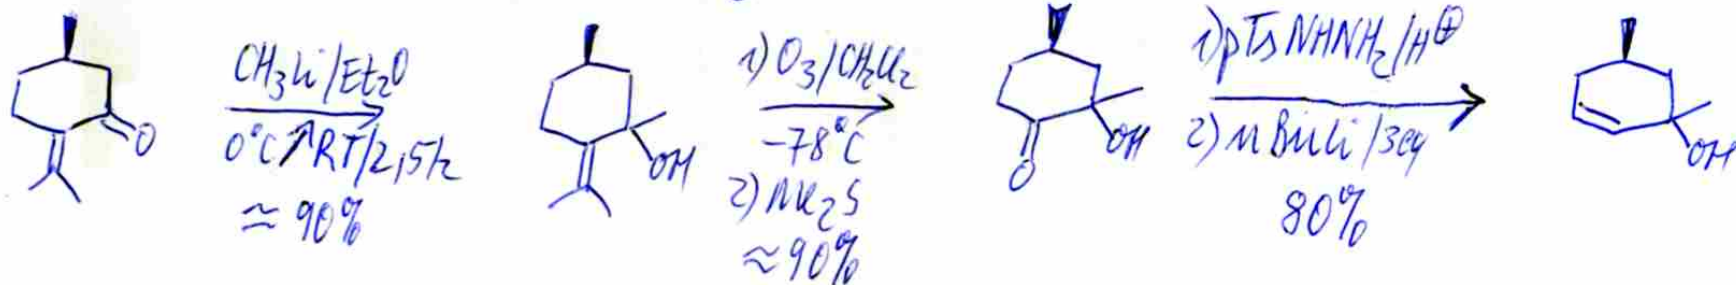 O
CH₃Li/Et₂O
0°C↗RT/2,5h
≈ 90%
OH
1) O₃/CH₂Cl₂
-78°C
2) Me₂S
≈ 90%
O
OH
1) pTsNHNH₂/H⊕
2) nBuLi/3eq
80%
OH